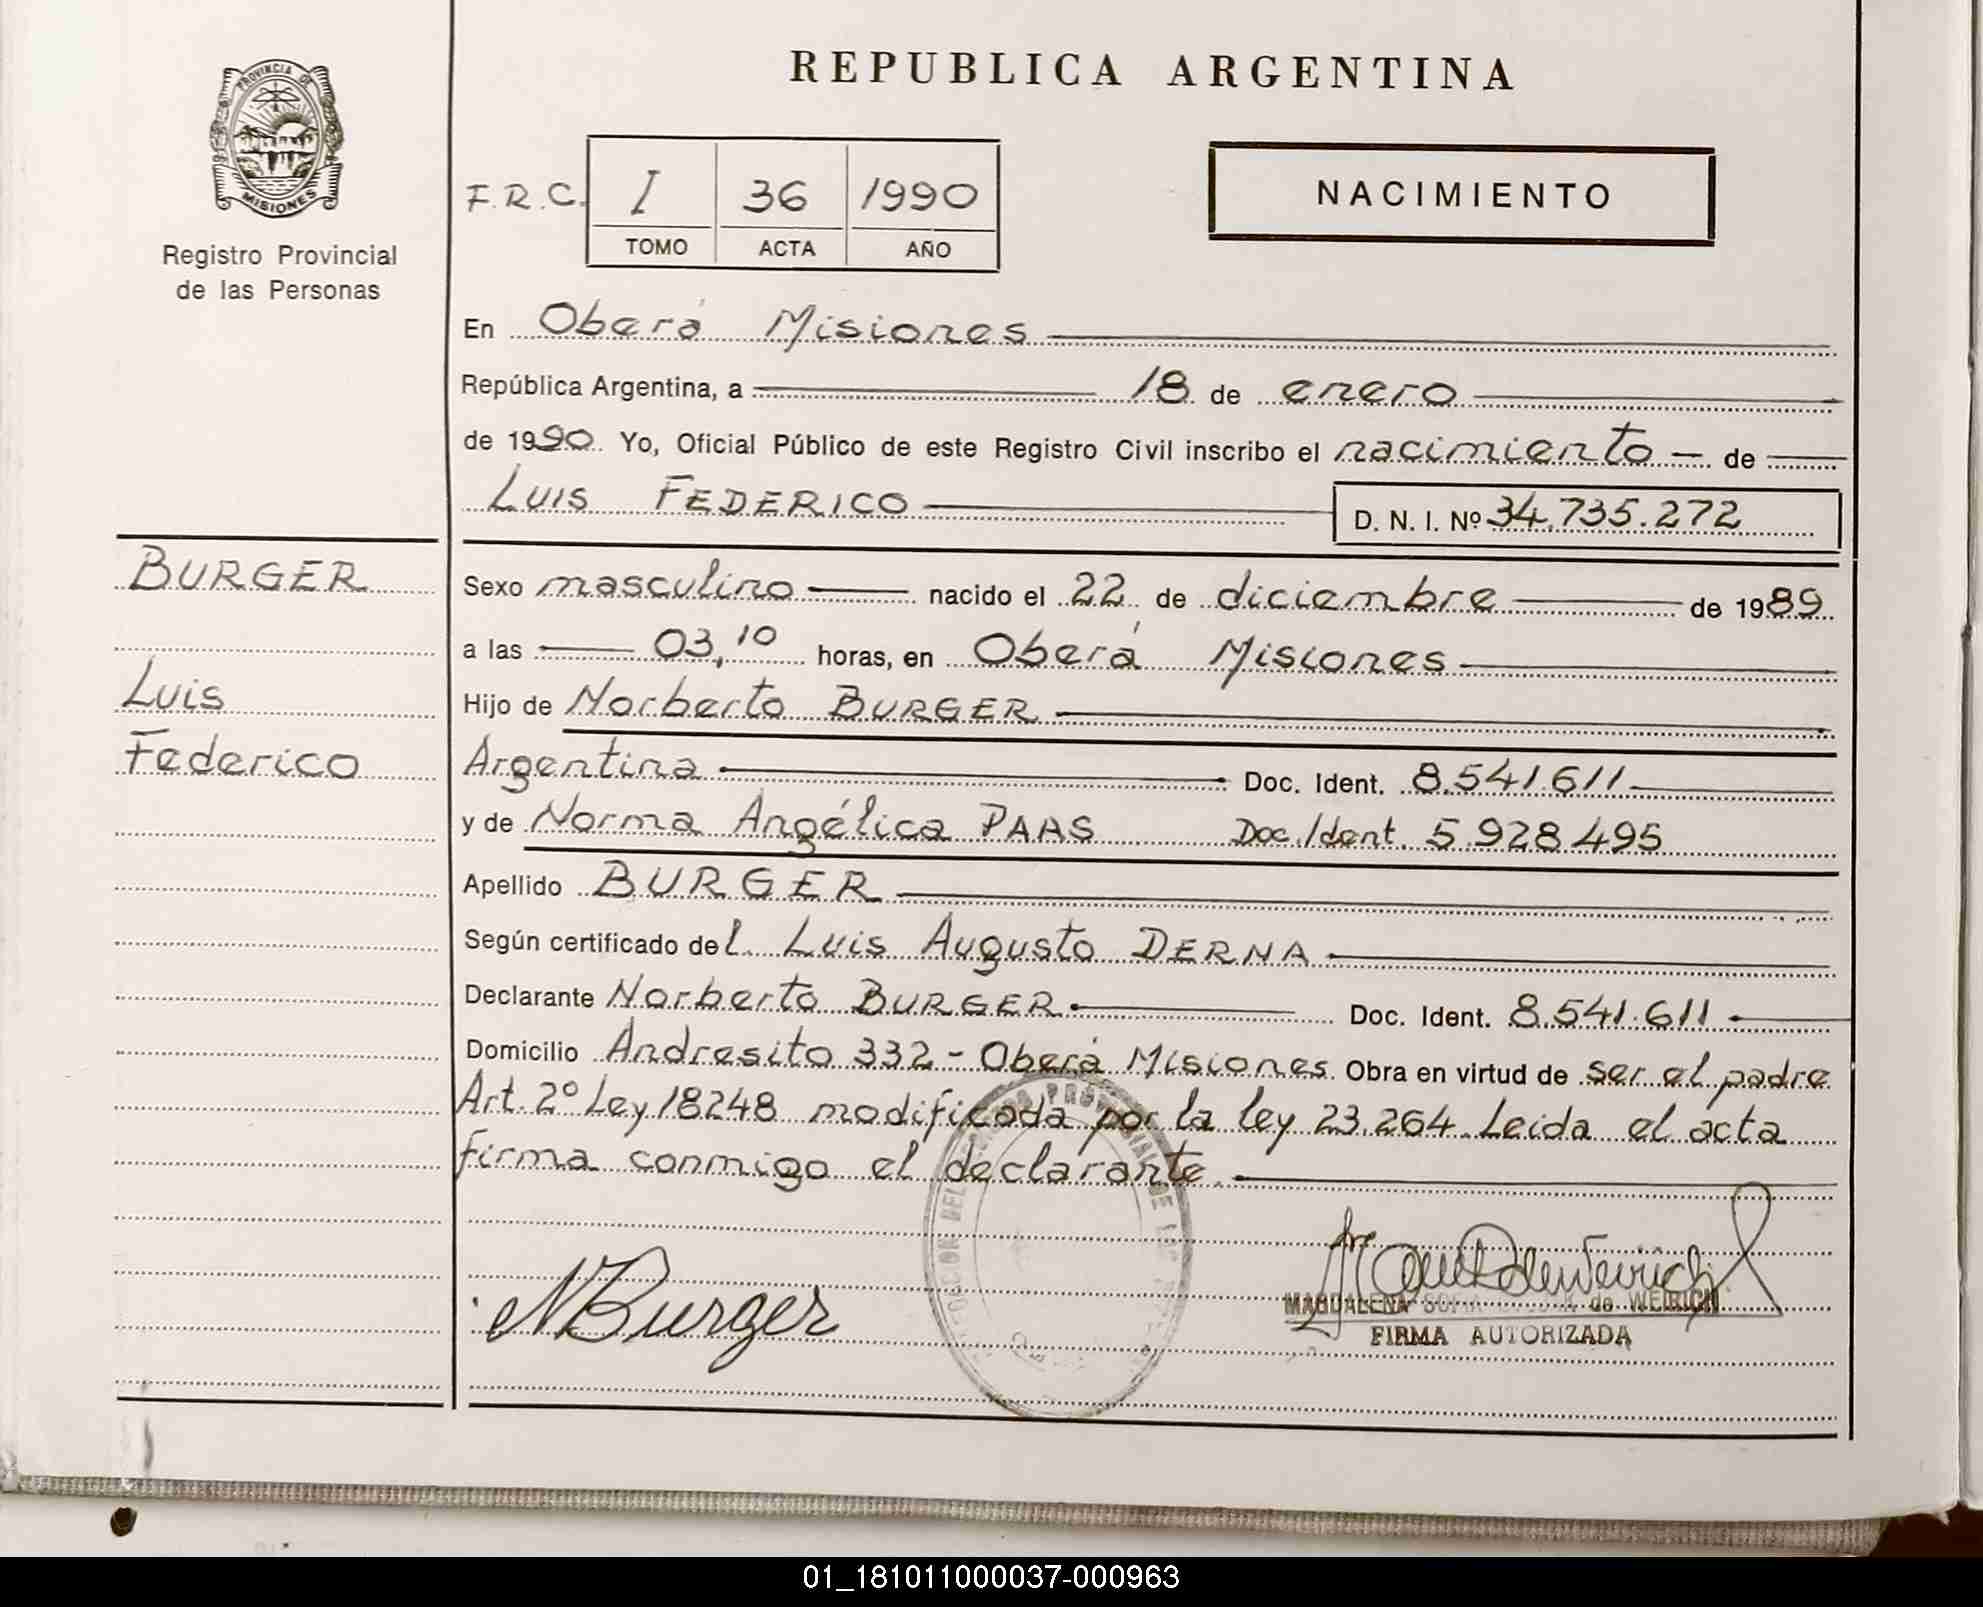 REPUBLICA ARGENTINA
PROVINCIA DE
MISIONES
Registro Provincial
de las Personas
F.R.C. I 36 1990
TOMO ACTA AÑO
NACIMIENTO
En Oberá Misiones
República Argentina, a 18 de enero
de 1990 Yo, Oficial Público de este Registro Civil inscribo el nacimiento de
LUIS FEDERICO D. N. I. Nº 34.735.272
BURGER
Luis
Federico
Sexo masculino nacido el 22 de diciembre de 1989
a las 03,10 horas, en Oberá Misiones
Hijo de Norberto BURGER
Argentina Doc. Ident. 8.541.611
y de Norma Angélica PAAS Doc. Ident. 5.928.495
Apellido BURGER
Según certificado del Luis Augusto DERNA
Declarante Norberto BURGER Doc. Ident. 8.541.611
Domicilio Andresito 332 - Oberá Misiones Obra en virtud de ser el padre
Art. 2º Ley 18248 modificada por la ley 23.264 Leida el acta
firma conmigo el declarante.
NBurger
MAGDALENA SOFIA de WEIRICH
FIRMA AUTORIZADA
01_181011000037-000963